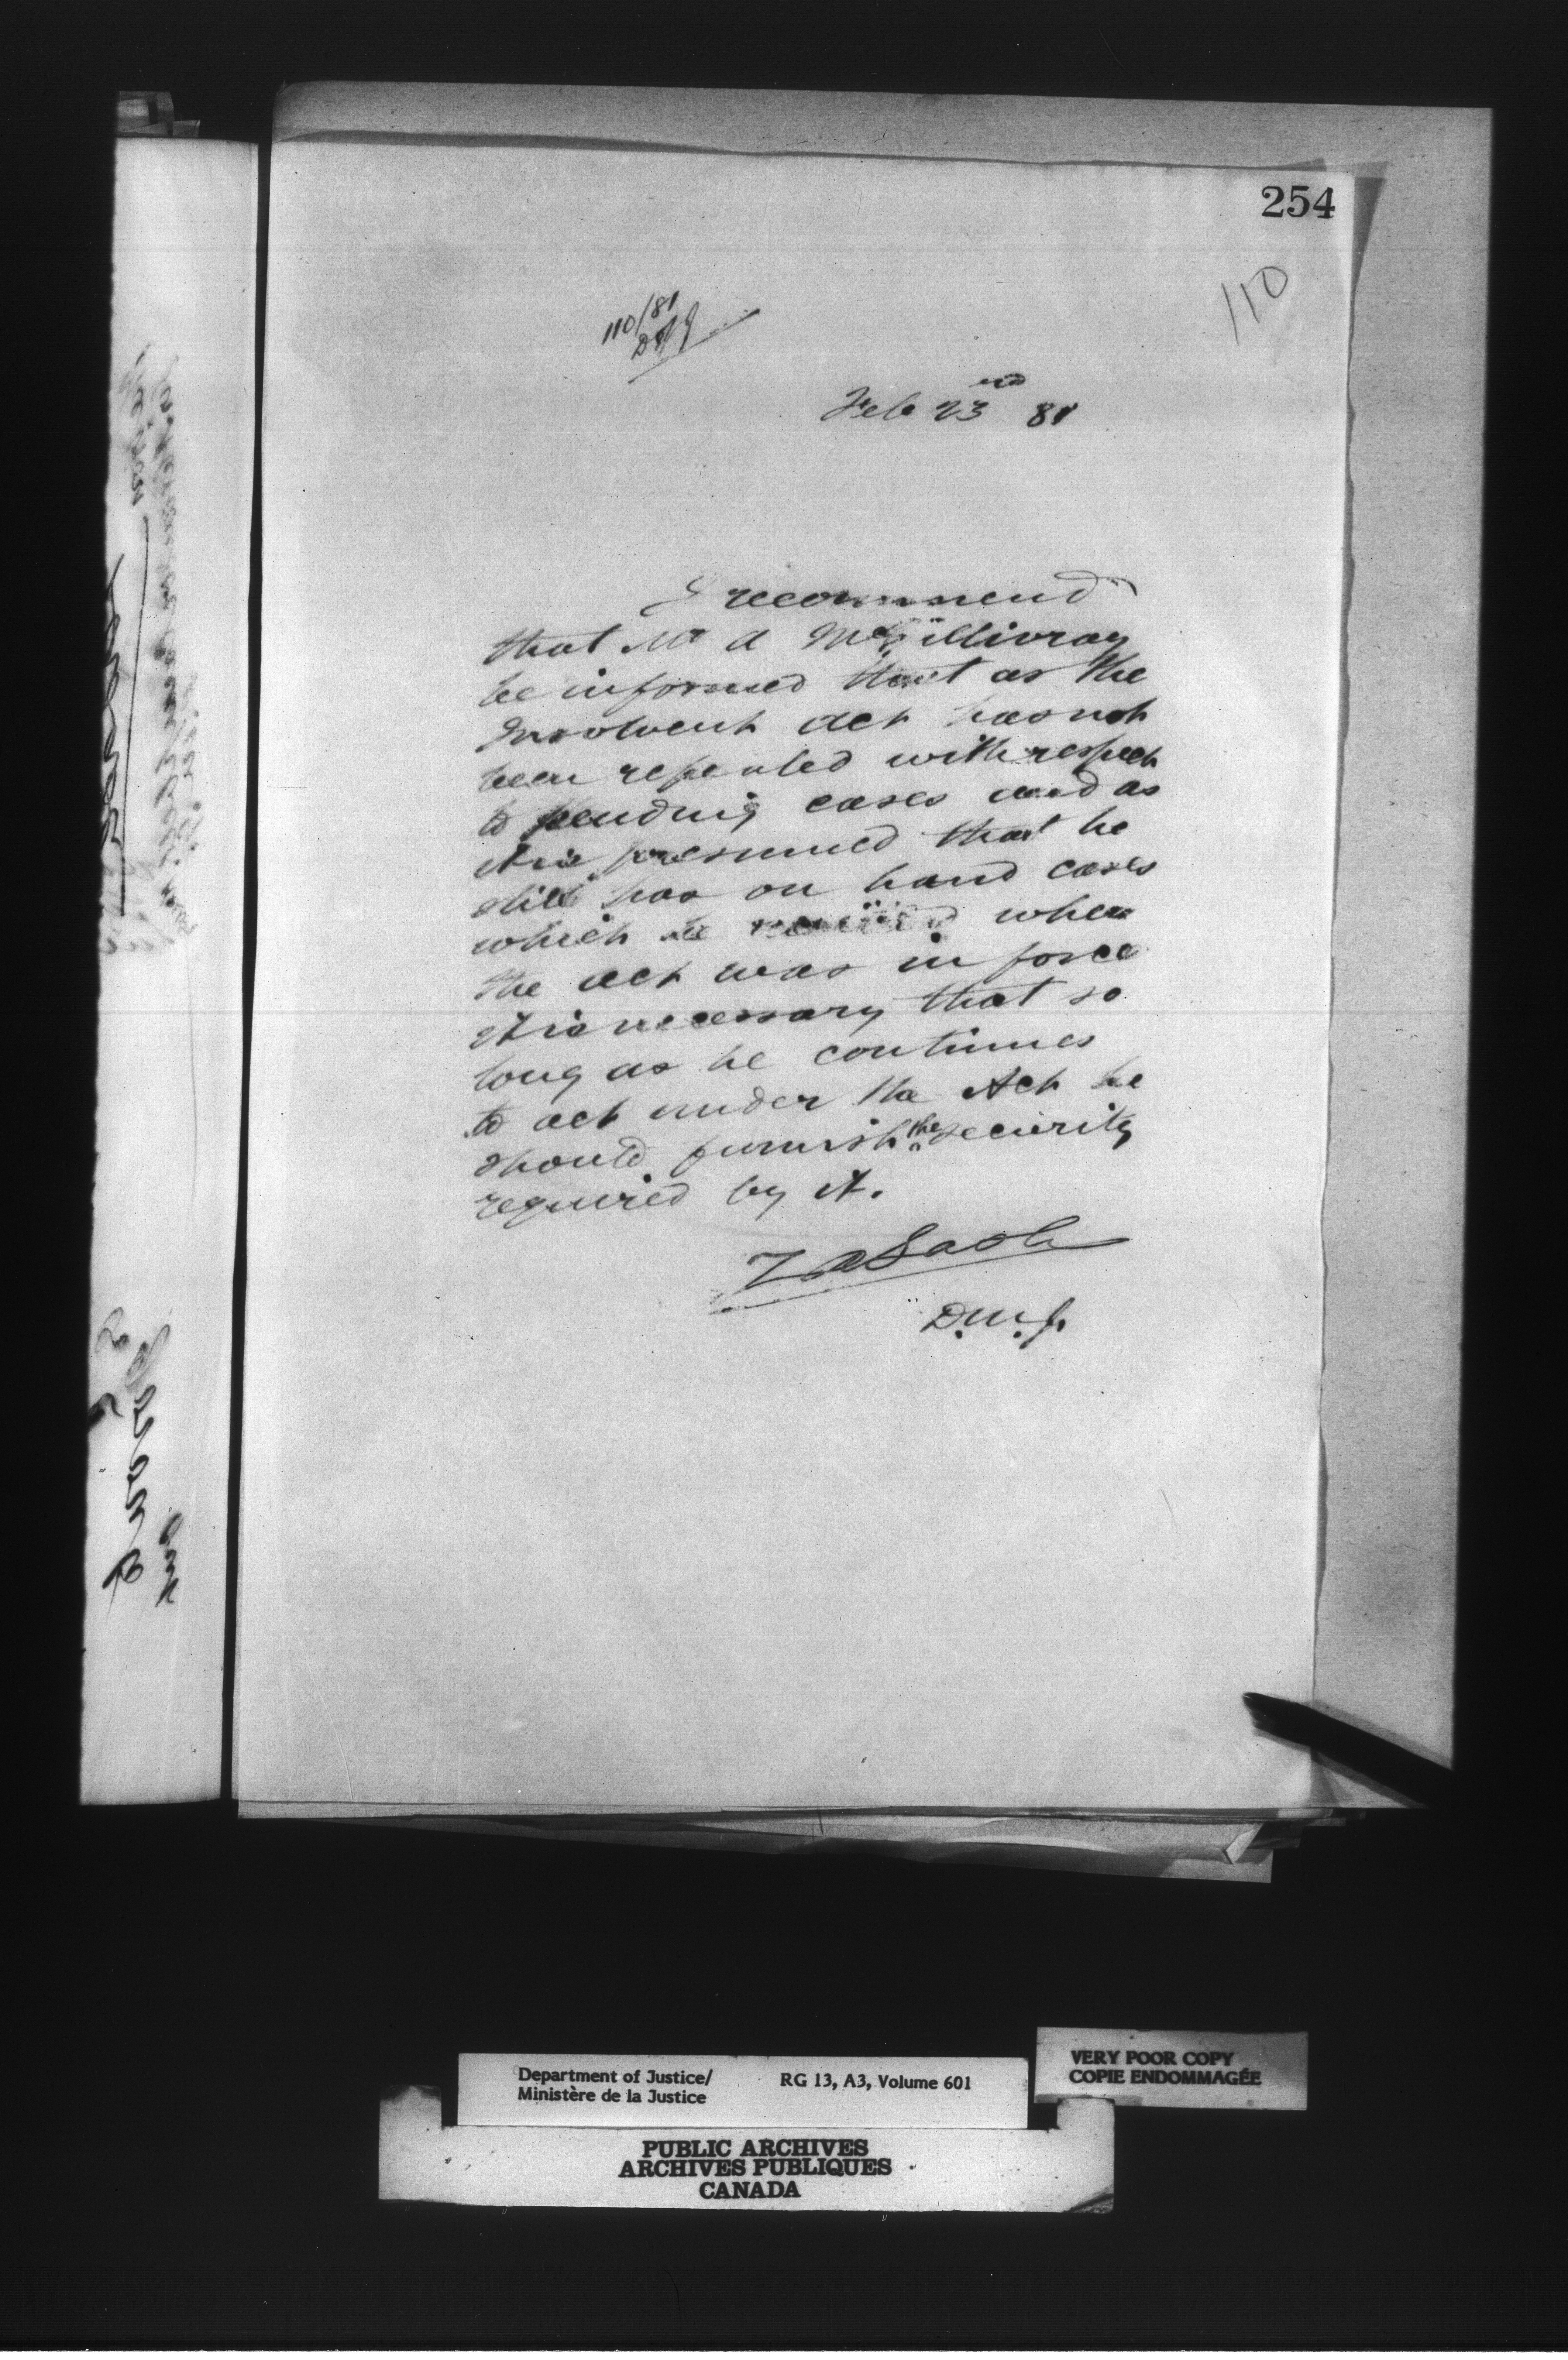 254
110
110/81
Feb 23rd 81
I recommend
that Mr A McGillivray
be informed that as the
Insolvent Act has not
been repealed with respect
to pending cases and as
it is presumed that he
still has on hand cases
which he received when
the act was in force
it is necessary that so
long as he continues
to act under the Act he
should furnish the security
required by it.
Z A Lash
D.M.J.
Department of Justice/
Ministère de la Justice
RG 13, A3, Volume 601
VERY POOR COPY
COPIE ENDOMMAGÉE
PUBLIC ARCHIVES
ARCHIVES PUBLIQUES
CANADA